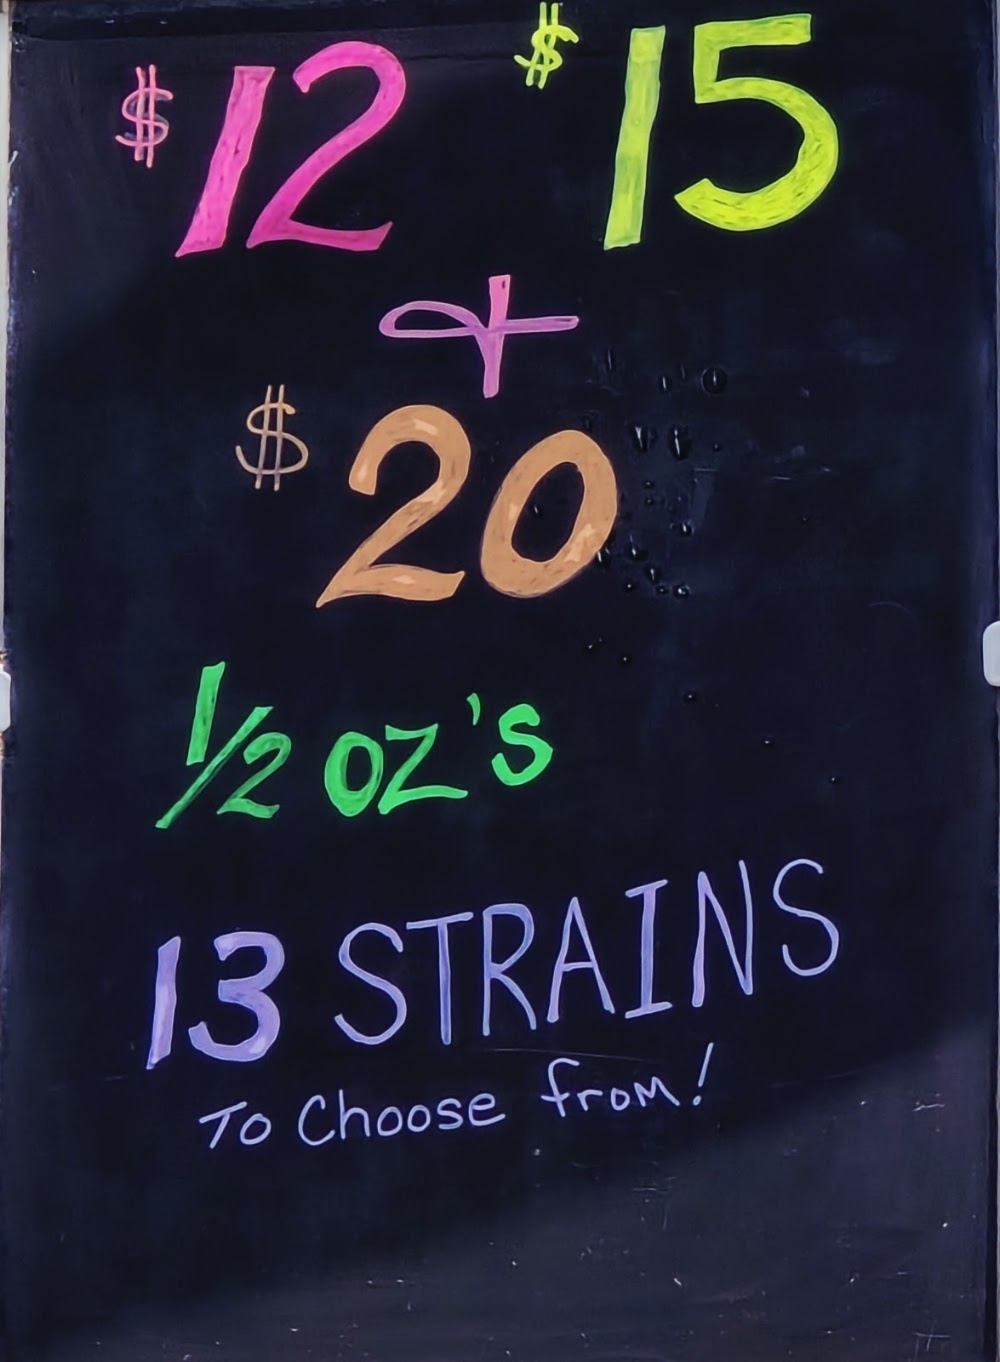 $12 $15
+
$20
1/2 OZ'S
13 STRAINS
To Choose from!